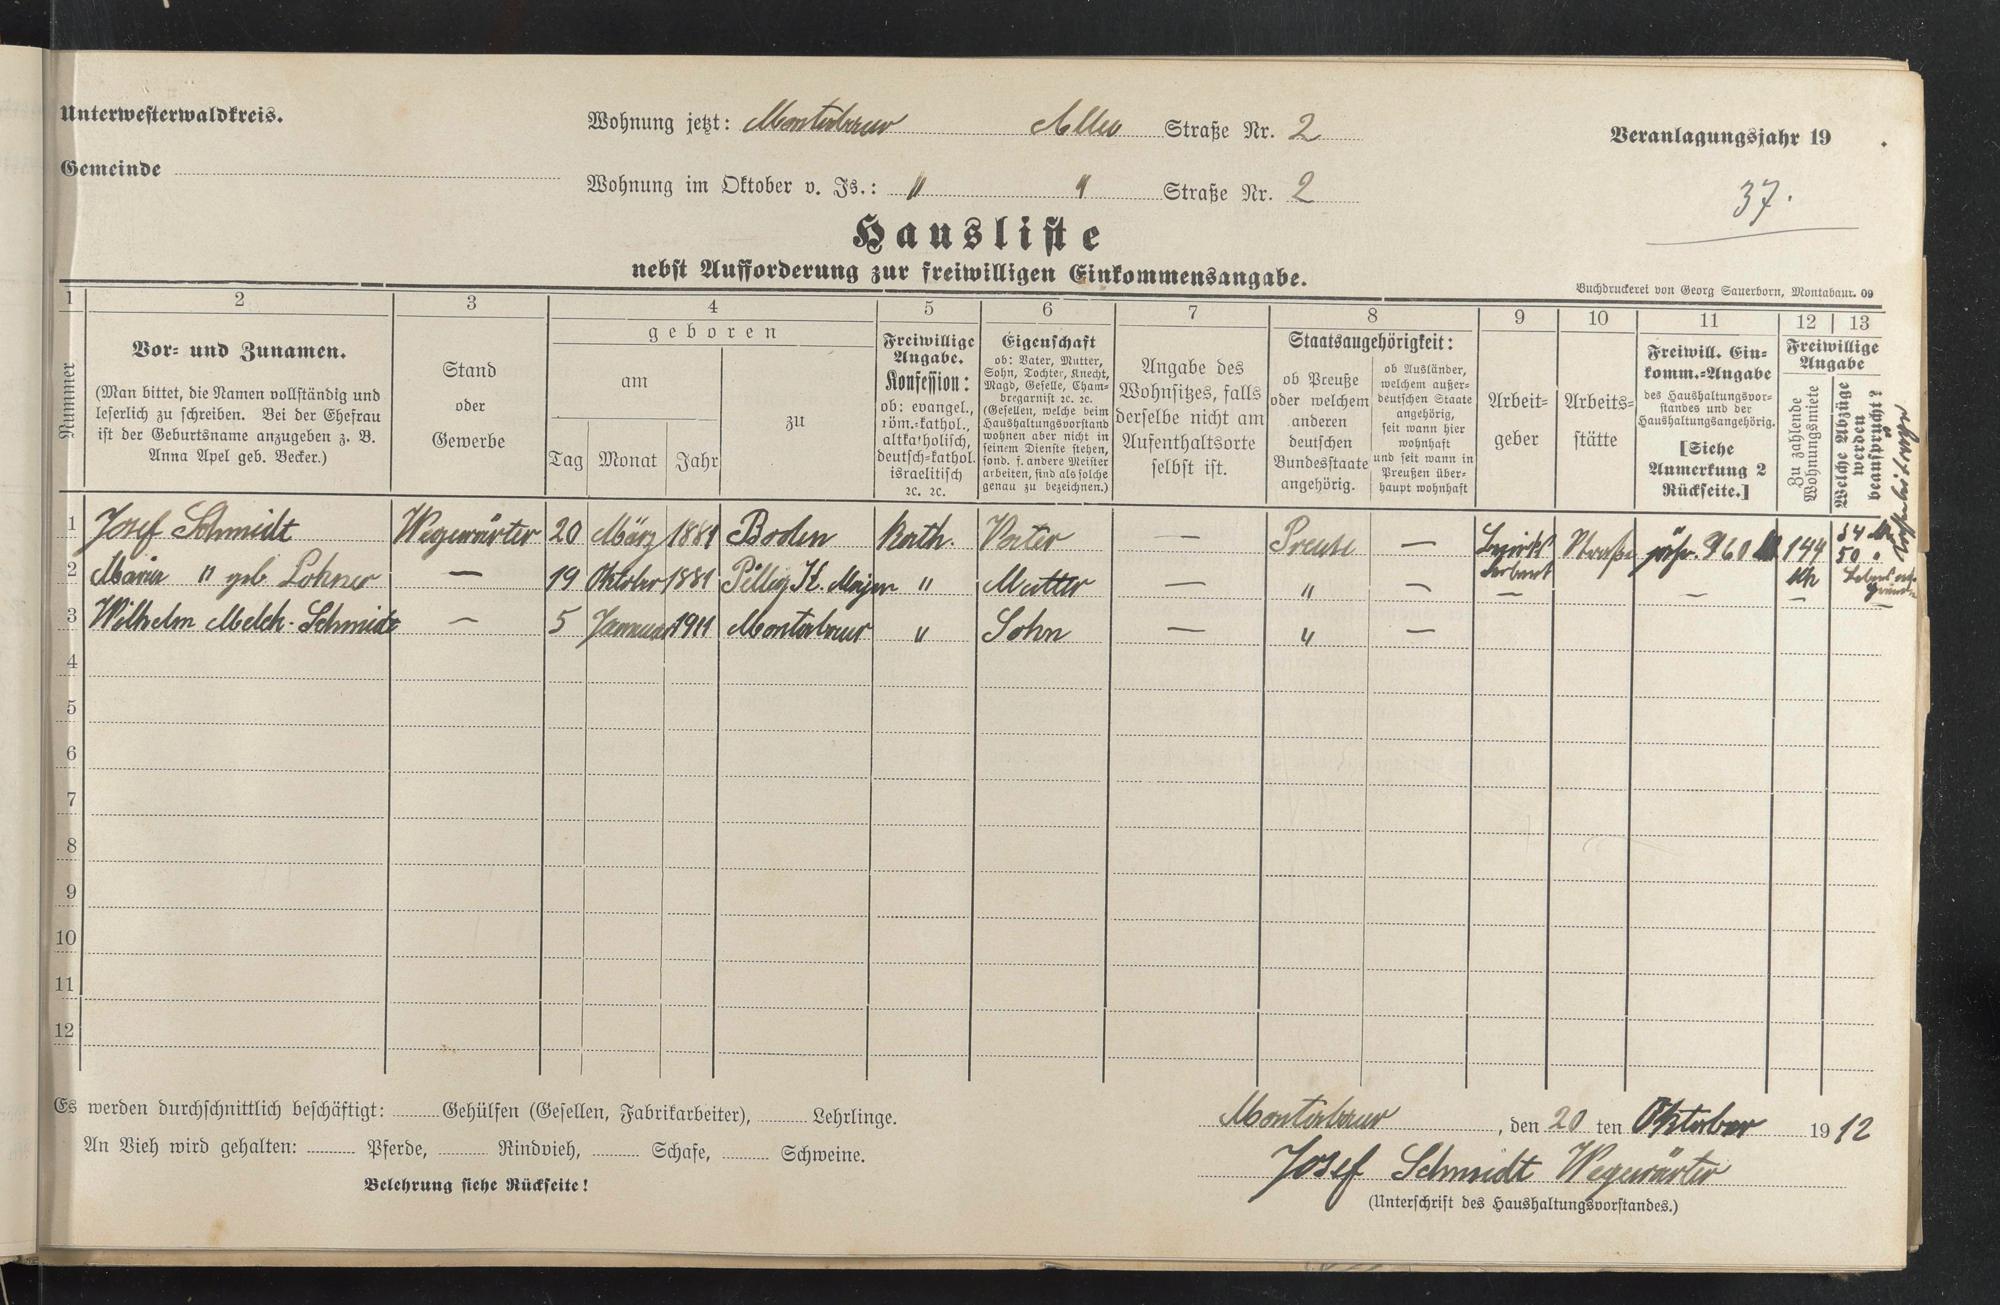 Unterwesterwaldkreis.
Wohnung jetzt: Montabaur Allee Straße Nr. 2
Veranlagungsjahr 19 .
Gemeinde
Wohnung im Oktober v. Js.: " " Straße Nr. 2
37.
Hausliste
nebst Aufforderung zur freiwilligen Einkommensangabe.
Buchdruckerei von Georg Sauerborn, Montabaur. 09
1 2 3 4 5 6 7 8 9 10 11 12 13
Nummer
Vor- und Zunamen.
(Man bittet, die Namen vollständig und
leserlich zu schreiben. Bei der Ehefrau
ist der Geburtsname anzugeben z. B.
Anna Apel geb. Becker.)
Stand
oder
Gewerbe
geboren
am
Tag Monat Jahr
zu
Freiwillige
Angabe.
Konfession:
ob: evangel.,
röm.-kathol.,
altkatholisch,
deutsch-kathol.
israelitisch
ꝛc. ꝛc.
Eigenschaft
ob: Vater, Mutter,
Sohn, Tochter, Knecht,
Magd, Geselle, Cham-
bregarnist ꝛc. ꝛc.
(Gesellen, welche beim
Haushaltungsvorstand
wohnen aber nicht in
seinem Dienste stehen,
sond. f. andere Meister
arbeiten, sind als solche
genau zu bezeichnen.)
Angabe des
Wohnsitzes, falls
derselbe nicht am
Aufenthaltsorte
selbst ist.
Staatsangehörigkeit:
ob Preuße
oder welchem
anderen
deutschen
Bundesstaate
angehörig.
ob Ausländer,
welchem außer-
deutschen Staate
angehörig,
seit wann hier
wohnhaft
und seit wann in
Preußen über-
haupt wohnhaft
Arbeit-
geber
Arbeits-
stätte
Freiwill. Ein-
komm.-Angabe
des Haushaltungsvor-
standes und der
Haushaltungsangehörig.
[Siehe
Anmerkung 2
Rückseite.]
Freiwillige
Angabe
Zu zahlende
Wohnungsmiete
Welche Abzüge
werden
beansprucht?
1 Josef Schmidt Wegewärter 20 März 1881 Boden Kath. Vater — Preuße — Bezirks Straße jähr. 960 M 144 34 M
verband Mk 50 "
2 Maria " geb Lohner — 19 Oktober 1881 Pillig K. Mayen " Mutter — " — — — —
3 Wilhelm Melch. Schmidt — 5 Januar 1911 Montabaur " Sohn — " —
4
5
6
7
8
9
10
11
12
Es werden durchschnittlich beschäftigt: Gehülfen (Gesellen, Fabrikarbeiter), Lehrlinge.
An Vieh wird gehalten: Pferde, Rindvieh, Schafe, Schweine.
Belehrung siehe Rückseite!
Montabaur, den 20 ten Oktober 1912
Josef Schmidt Wegewärter
(Unterschrift des Haushaltungsvorstandes.)